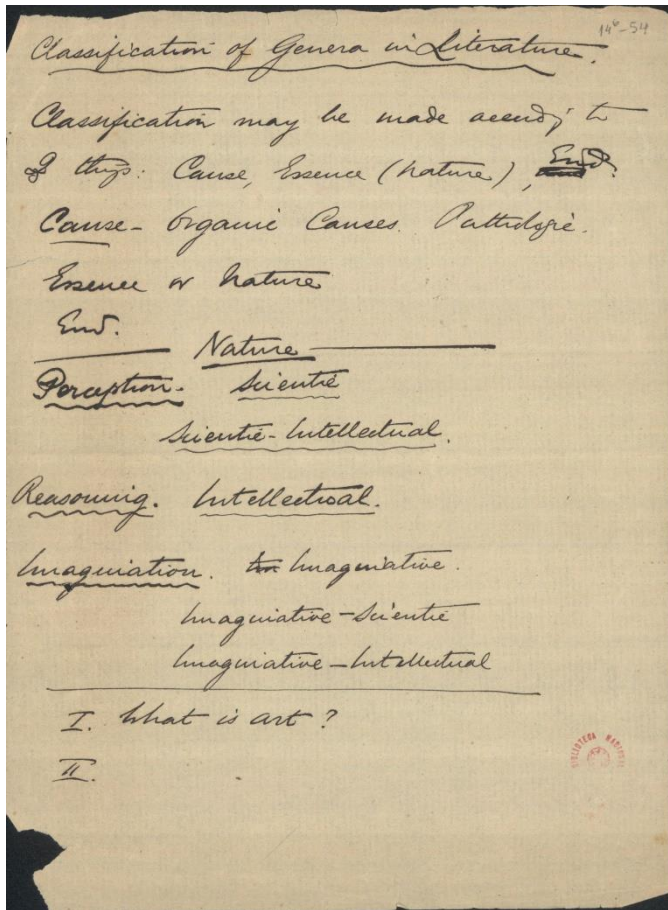 14⁶-54
Classification of Genera in Literature.
Classification may be made accordg to
3 thgs: Cause, Essence (Nature), End.
Cause - Organic Causes. Pathologic.
Essence or Nature
End.
Nature
Perception. Scientic
Scientic-Intellectual.
Reasoning. Intellectual.
Imagination. Im Imaginative.
Imaginative-Scientic
Imaginative-Intellectual
I. What is art?
II.
BIBLIOTECA NACIONAL